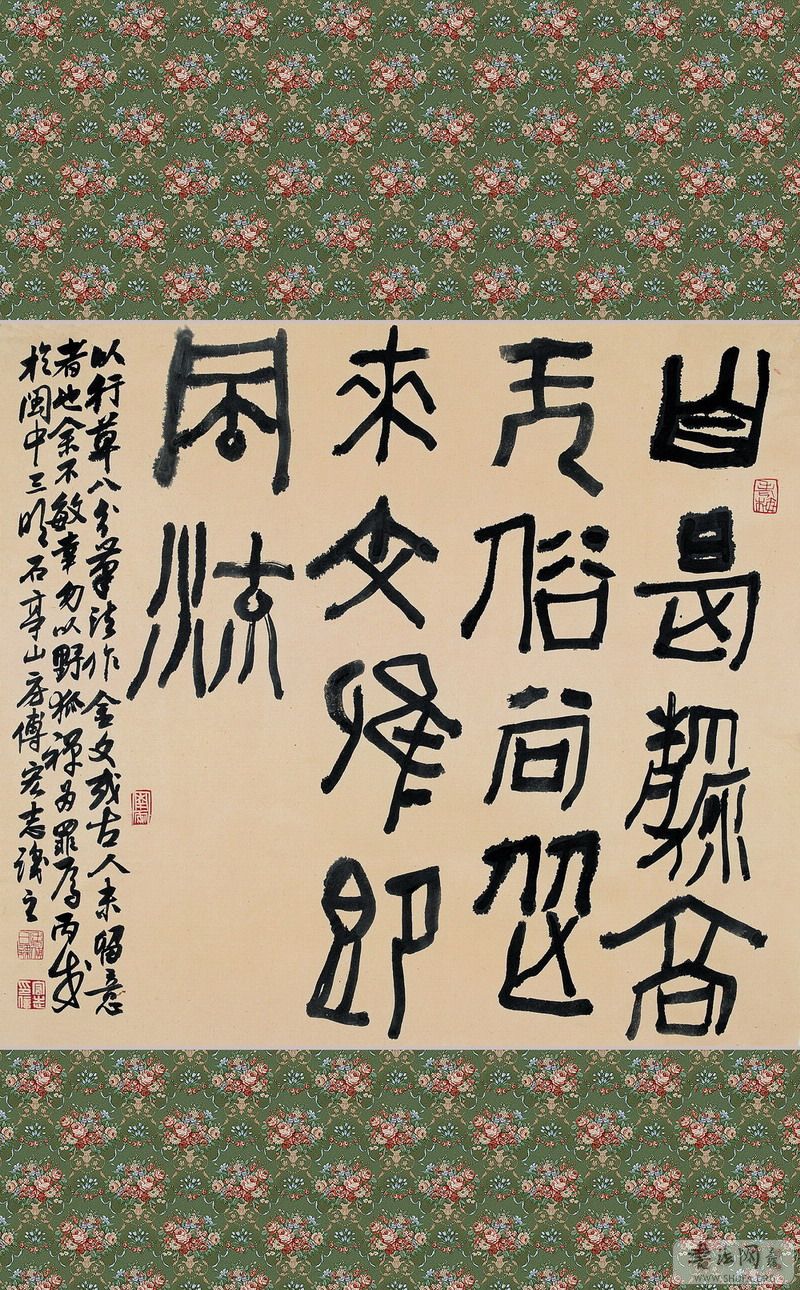 自是高
无俗尚
來文即

以行草八分筆法作金文或古人未留意
者也余不敏幸勿以野狐禪為罪焉丙戌
於閩中三明石亭山房傅宏志識之